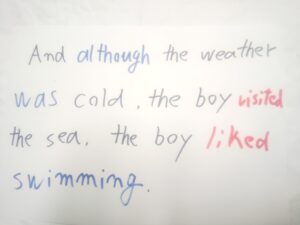 And although the weather
was cold, the boy visited
the sea. the boy liked
swimming.